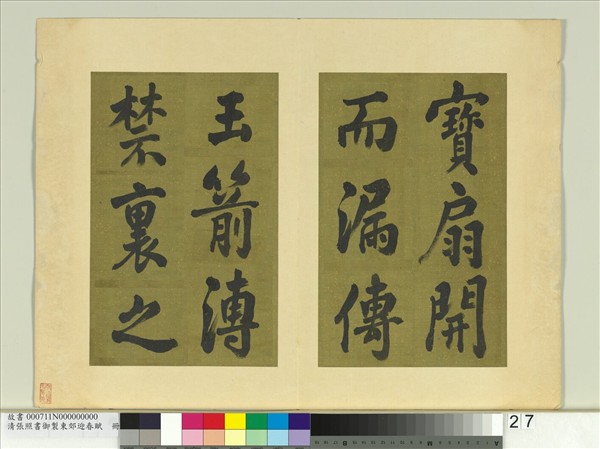 寶扇開
而漏傳
玉箭溥
禁裏之
故書 000711N000000000
清張照書御製東郊迎春賦 冊
27